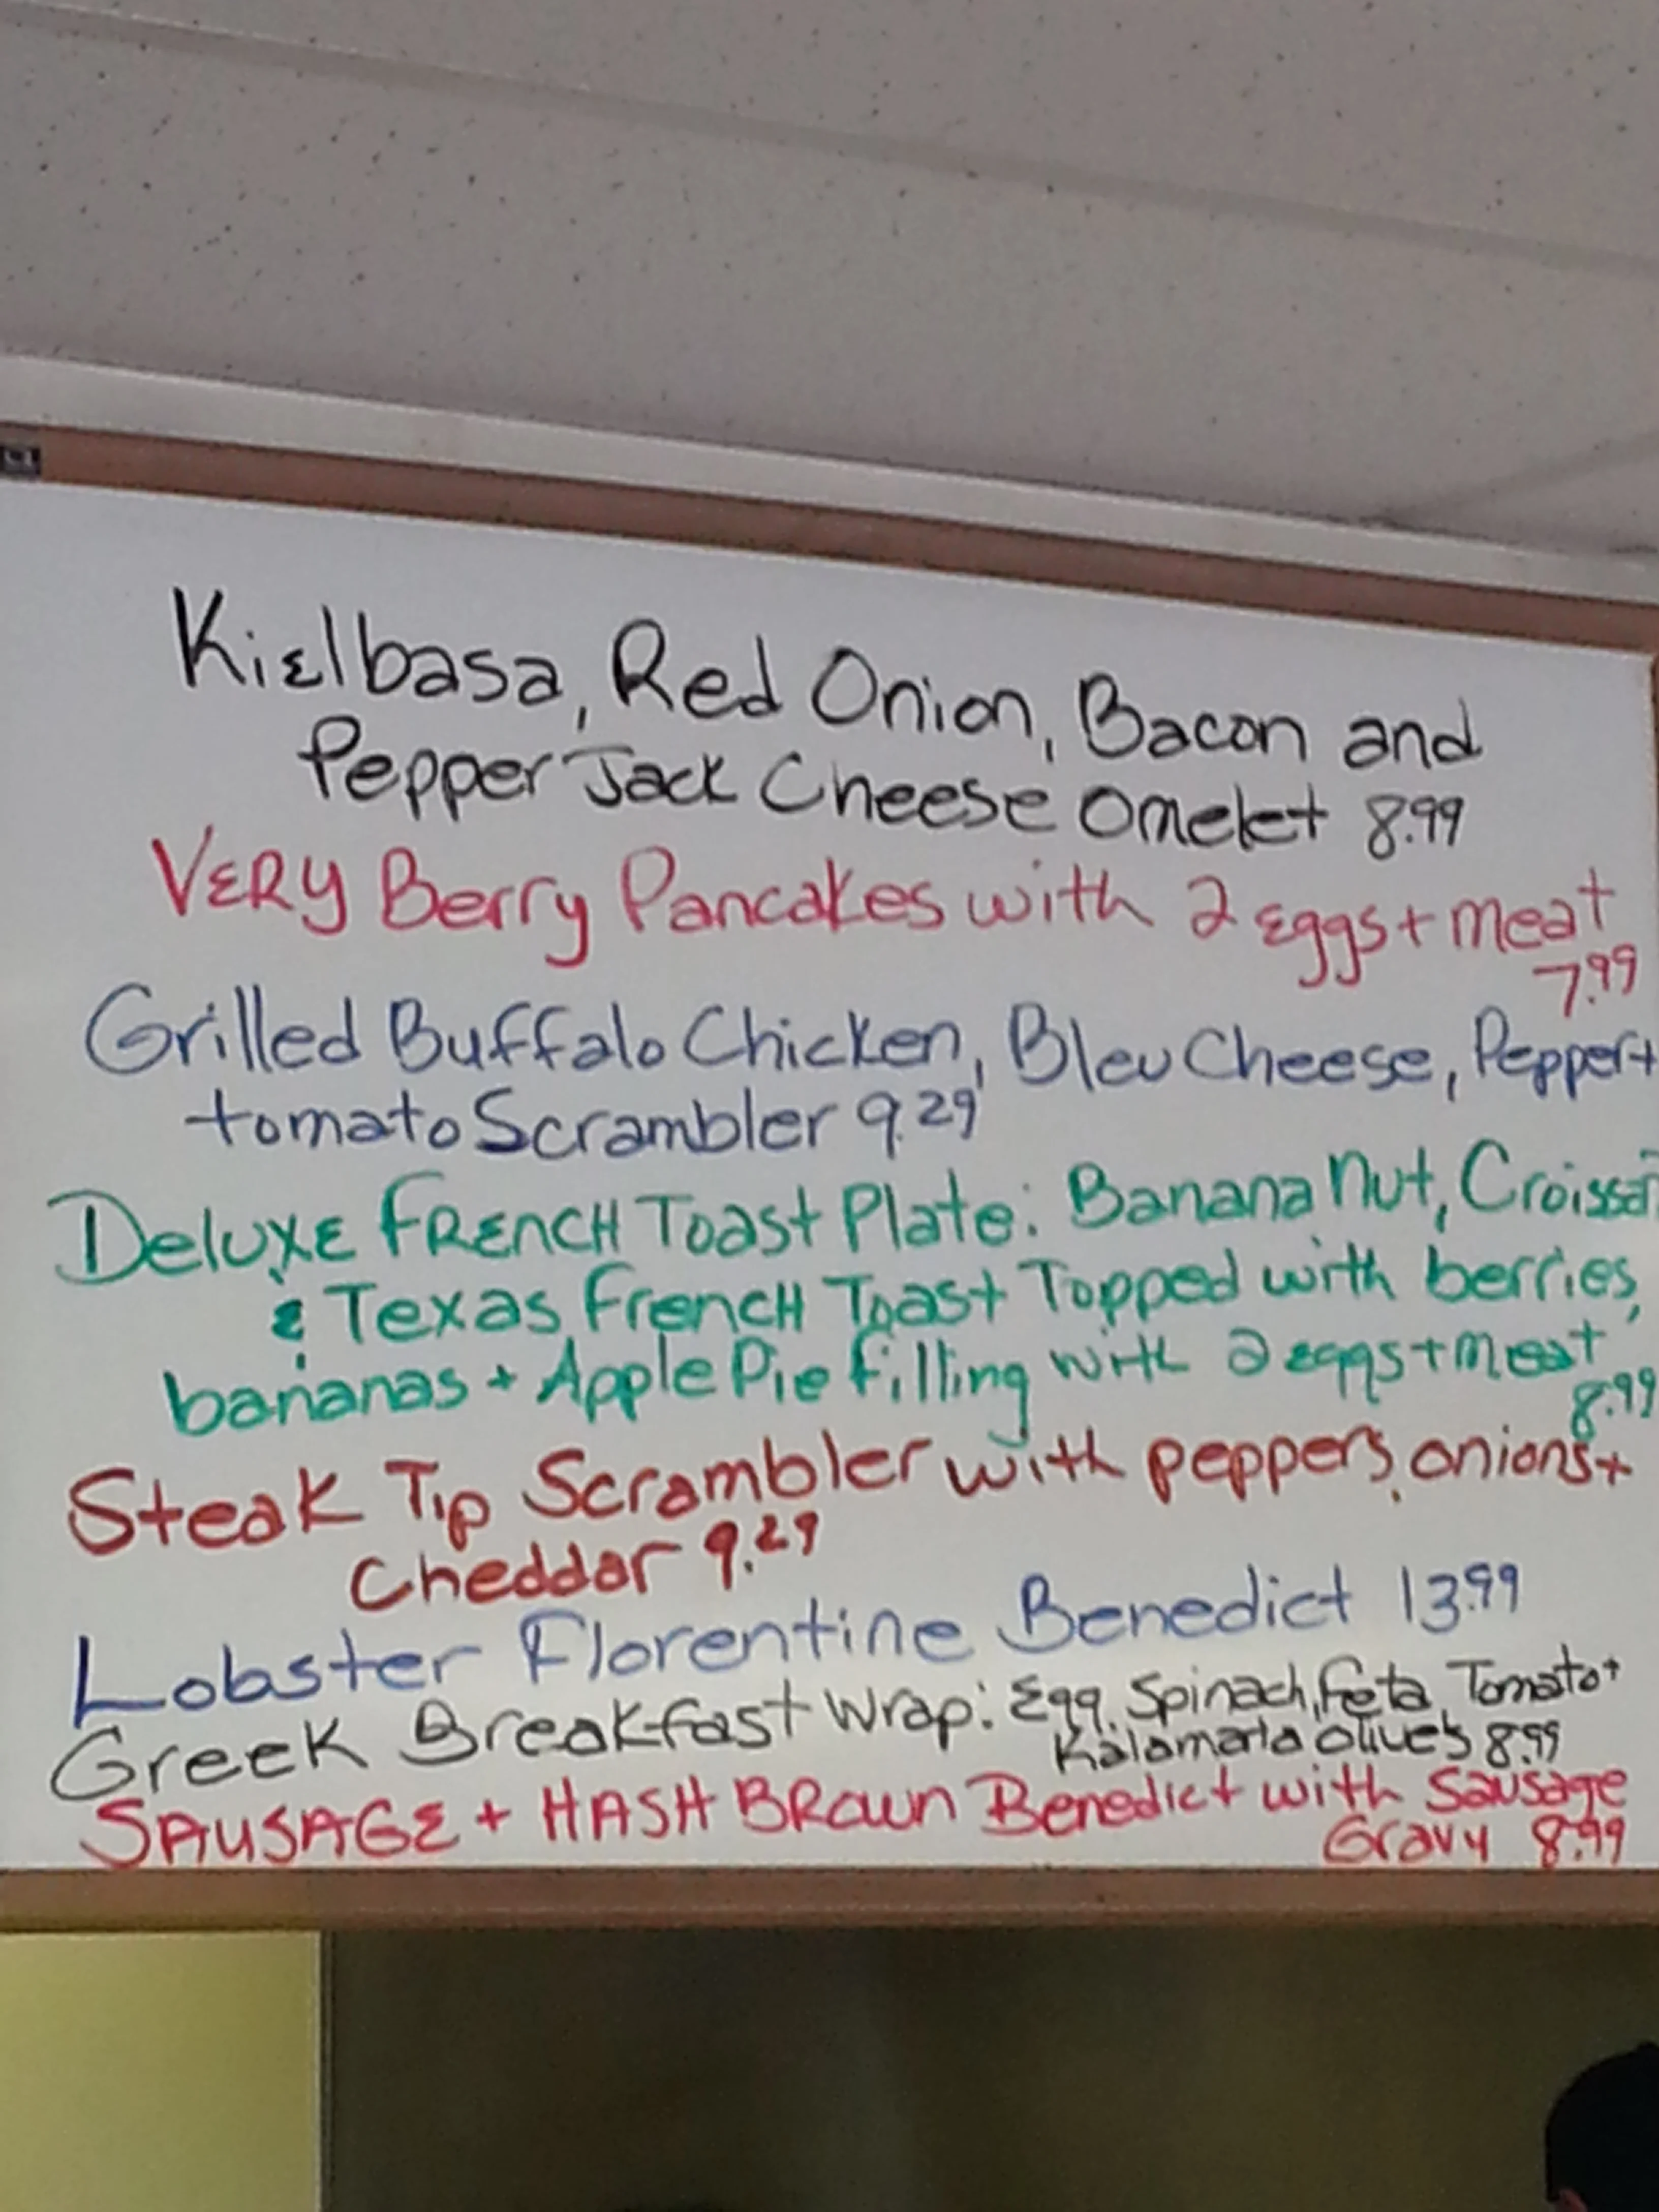 Kielbasa, Red Onion, Bacon and
Pepper Jack Cheese Omelet 8.99
VERY Berry Pancakes with 2 eggs + meat
7.99
Grilled Buffalo Chicken, Bleu Cheese, Pepper +
tomato Scrambler 9.29
Deluxe FRENCH Toast Plate: Banana Nut, Croissan
& Texas French Toast Topped with berries,
bananas + Apple Pie filling with 2 eggs + meat
8.99
Steak Tip Scrambler with peppers, onions +
Cheddar 9.29
Lobster Florentine Benedict 13.99
Greek Breakfast Wrap: Egg, Spinach, Feta, Tomato +
Kalamata olives 8.99
SAUSAGE + HASH BROWN Benedict with Sausage
Gravy 8.99